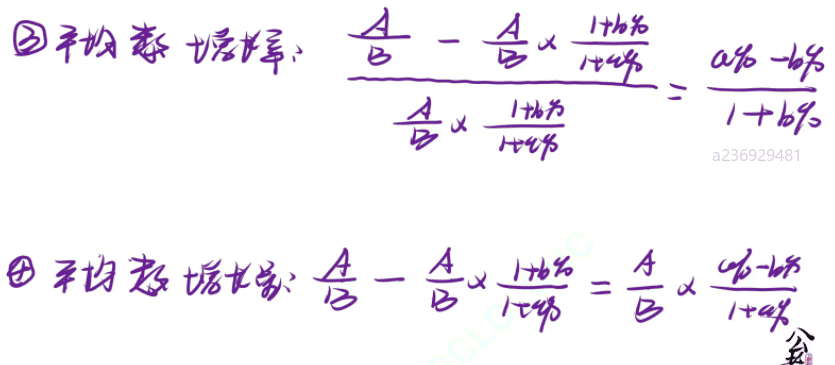 ③平均数增长率: (A/B - A/B × (1+b%)/(1+a%)) / (A/B × (1+b%)/(1+a%)) = (a% - b%)/(1+b%)
a236929481
④平均数增长量: A/B - A/B × (1+b%)/(1+a%) = A/B × (a%-b%)/(1+a%)
公